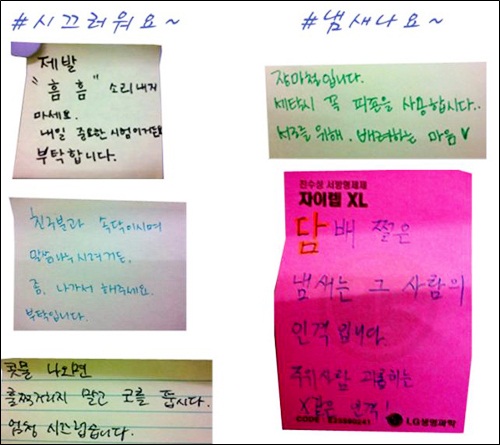 #시끄러워요~
제발
"흠흠" 소리내지
마세요.
내일 중요한 시험이거든요
부탁합니다.
친구분과 속닥이시며
말씀나누시려거든,
좀, 나가서 해주세요.
부탁입니다.
콧물 나오면
훌쩍거리지 말고 코를 풉시다.
엄청 시끄럽습니다.
#냄새나요~
장마철입니다.
세탁시 꼭 피죤을 사용합시다..
서로를 위해. 배려하는 마음♥
전수상 서방형제제
자이렙 XL
담배 쩔은
냄새는 그 사람의
인격입니다.
주위사람 괴롭히는
X같은 인격!
CODE
LG생명과학